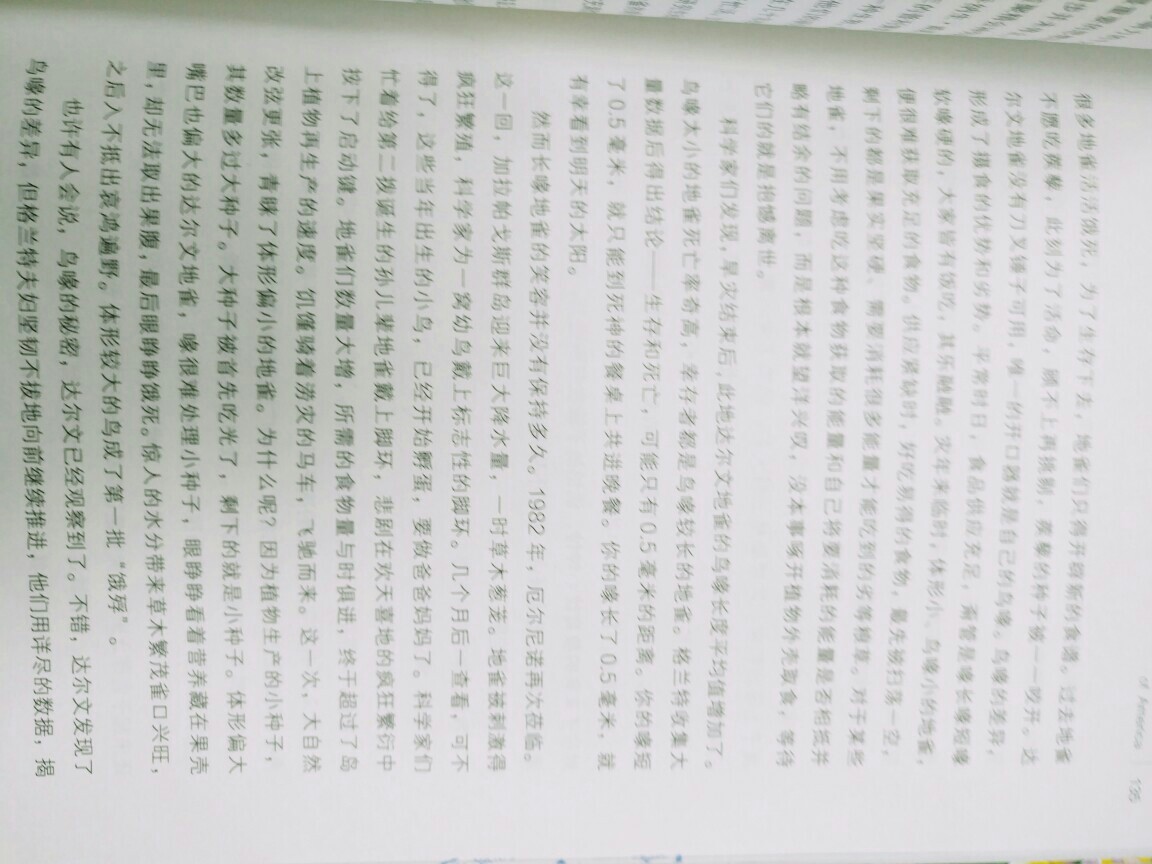 of America 135
很多地雀活活饿死，为了生存下去，地雀们只得开辟新的食谱。过去地雀
不愿吃蒺藜，此刻为了活命，顾不上再挑剔，蒺藜的种子被一一咬开。达
尔文地雀没有刀叉锤子可用，唯一的开口器就是自己的鸟喙。鸟喙的差异，
形成了猎食的优势和劣势。平常时日，食品供应充足，甭管是喙长喙短喙
软喙硬的，大家皆有饭吃，其乐融融。灾年来临时，体形小、鸟喙小的地雀，
便很难获取充足的食物。供应紧缺时，好吃易得的食物，最先被扫荡一空，
剩下的都是果实坚硬、需要消耗很多能量才能吃到的劣等粮草。对于某些
地雀，不用考虑吃这种食物获取的能量和自己将要消耗的能量是否相抵并
略有结余的问题，而是根本就望洋兴叹，没本事啄开植物外壳取食，等待
它们的就是抱憾离世。
科学家们发现，旱灾结束后，此地达尔文地雀的鸟喙长度平均值增加了。
鸟喙大小的地雀死亡率奇高，幸存者都是鸟喙较长的地雀。格兰特收集大
量数据后得出结论——生存和死亡，可能只有0.5毫米的距离。你的喙短
了0.5毫米，就只能到死神的餐桌上共进晚餐。你的喙长了0.5毫米，就
有幸看到明天的太阳。
然而长喙地雀的笑容并没有保持多久。1982年，厄尔尼诺再次莅临。
这一回，加拉帕戈斯群岛迎来巨大降水量，一时草木葱茏。地雀被刺激得
疯狂繁殖，科学家为一窝幼鸟戴上标志性的脚环。几个月后一查看，可不
得了，这些当年出生的小鸟，已经开始孵蛋，要做爸爸妈妈了。科学家们
忙着给第二拨诞生的孙儿辈地雀戴上脚环，悲剧在欢天喜地的疯狂繁衍中
按下了启动键。地雀们数量大增，所需的食物量与时俱进，终于超过了岛
上植物再生产的速度。饥馑骑着涝灾的马车，飞驰而来。这一次，大自然
改弦更张，青睐了体形偏小的地雀。为什么呢？因为植物生产的小种子，
其数量多过大种子。大种子被首先吃光了，剩下的就是小种子。体形偏大
嘴巴也偏大的达尔文地雀，喙很难处理小种子，眼睁睁看着营养藏在果壳
里，却无法取出果腹，最后眼睁睁饿死。惊人的水分带来草木繁茂雀口兴旺，
之后入不抵出哀鸿遍野。体形较大的鸟成了第一批“饿殍”。
也许有人会说，鸟喙的秘密，达尔文已经观察到了。不错，达尔文发现了
鸟喙的差异，但格兰特夫妇坚韧不拔地向前继续推进，他们用详尽的数据，揭